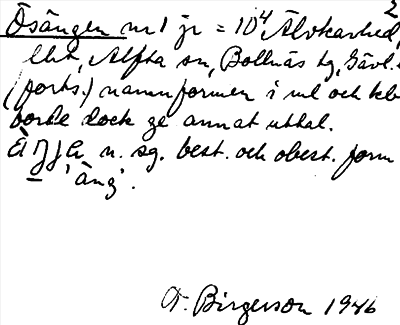 2
Ösängen nr 1 jr = 10⁴ Älvkarhed,
lht, Alfta sn, Bollnäs tg, Gävl.
(forts.) namnformen i ml och kb
borde dock ge annat uttal.
n. sg. best. och obest. form
= 'äng'.
A. Birgerson 1946